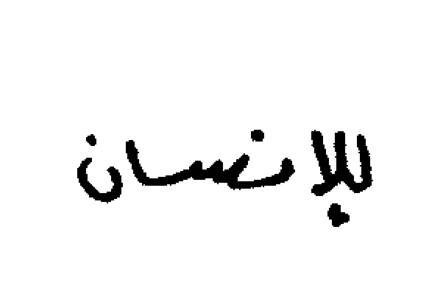 للإنسان